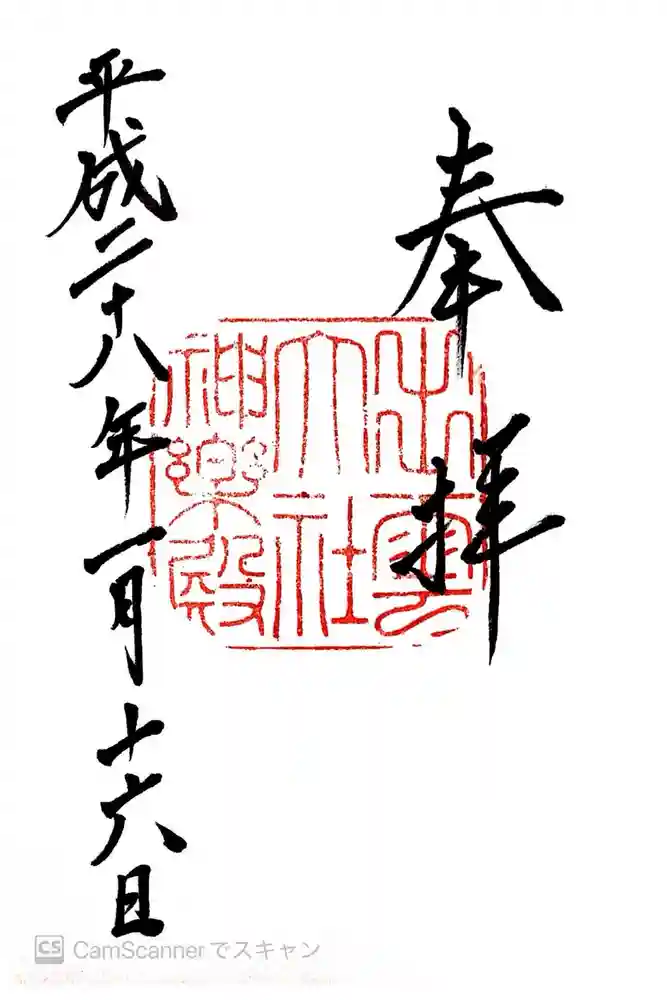 奉拝
出雲
大社
神楽殿
平成二十八年一月十六日
CS CamScannerでスキャン